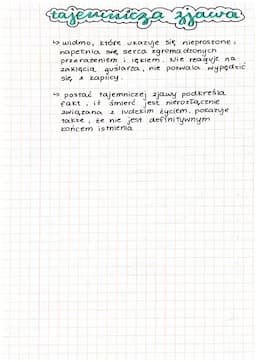 tajemnicza zjawa
→ widmo, które ukazuje się nieproszone,
napełnia się serca zgromadzonych
przerażeniem i lękiem. Nie reaguje na
zaklęcia, guślarza, nie pozwala wypędzić
się z kaplicy.
→ postać tajemniczej zjawy podkreśla
fakt, iż śmierć jest nierozłącznie
związana z ludzkim życiem, pokazuje
także, że nie jest definitywnym
końcem istnienia